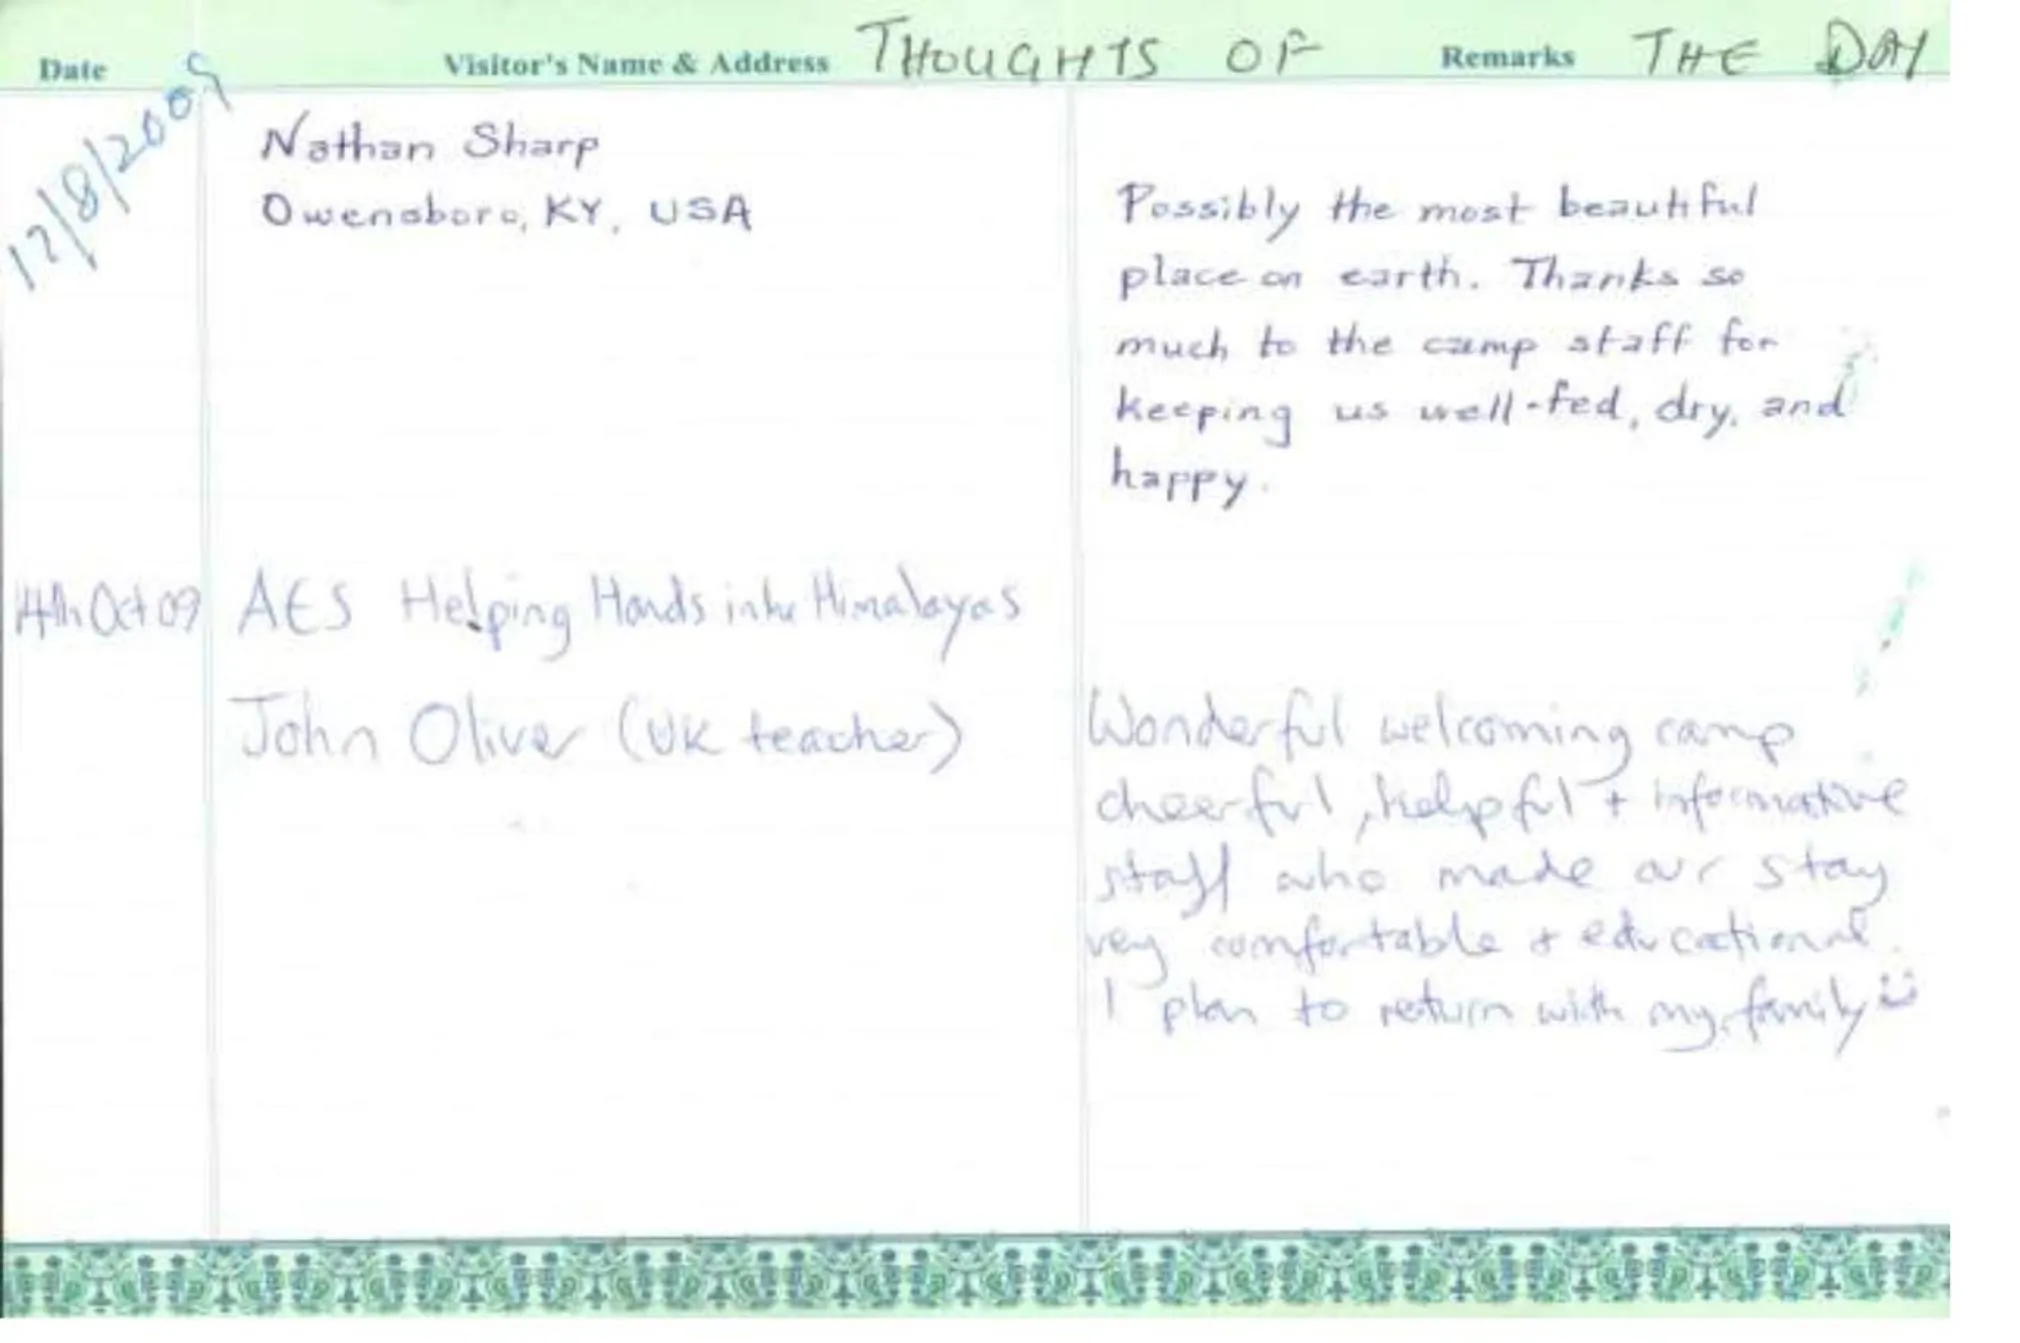 Date Visitor's Name & Address THOUGHTS OF Remarks THE DAY
12/8/2009
Nathan Sharp
Owensboro, KY, USA
Possibly the most beautiful
place on earth. Thanks so
much to the camp staff for
keeping us well-fed, dry, and
happy.
14th Oct 09 AES Helping Hands in the Himalayas
John Oliver (UK teacher)
Wonderful welcoming camp
cheerful, helpful + informative
staff who made our stay
very comfortable + educational.
I plan to return with my family